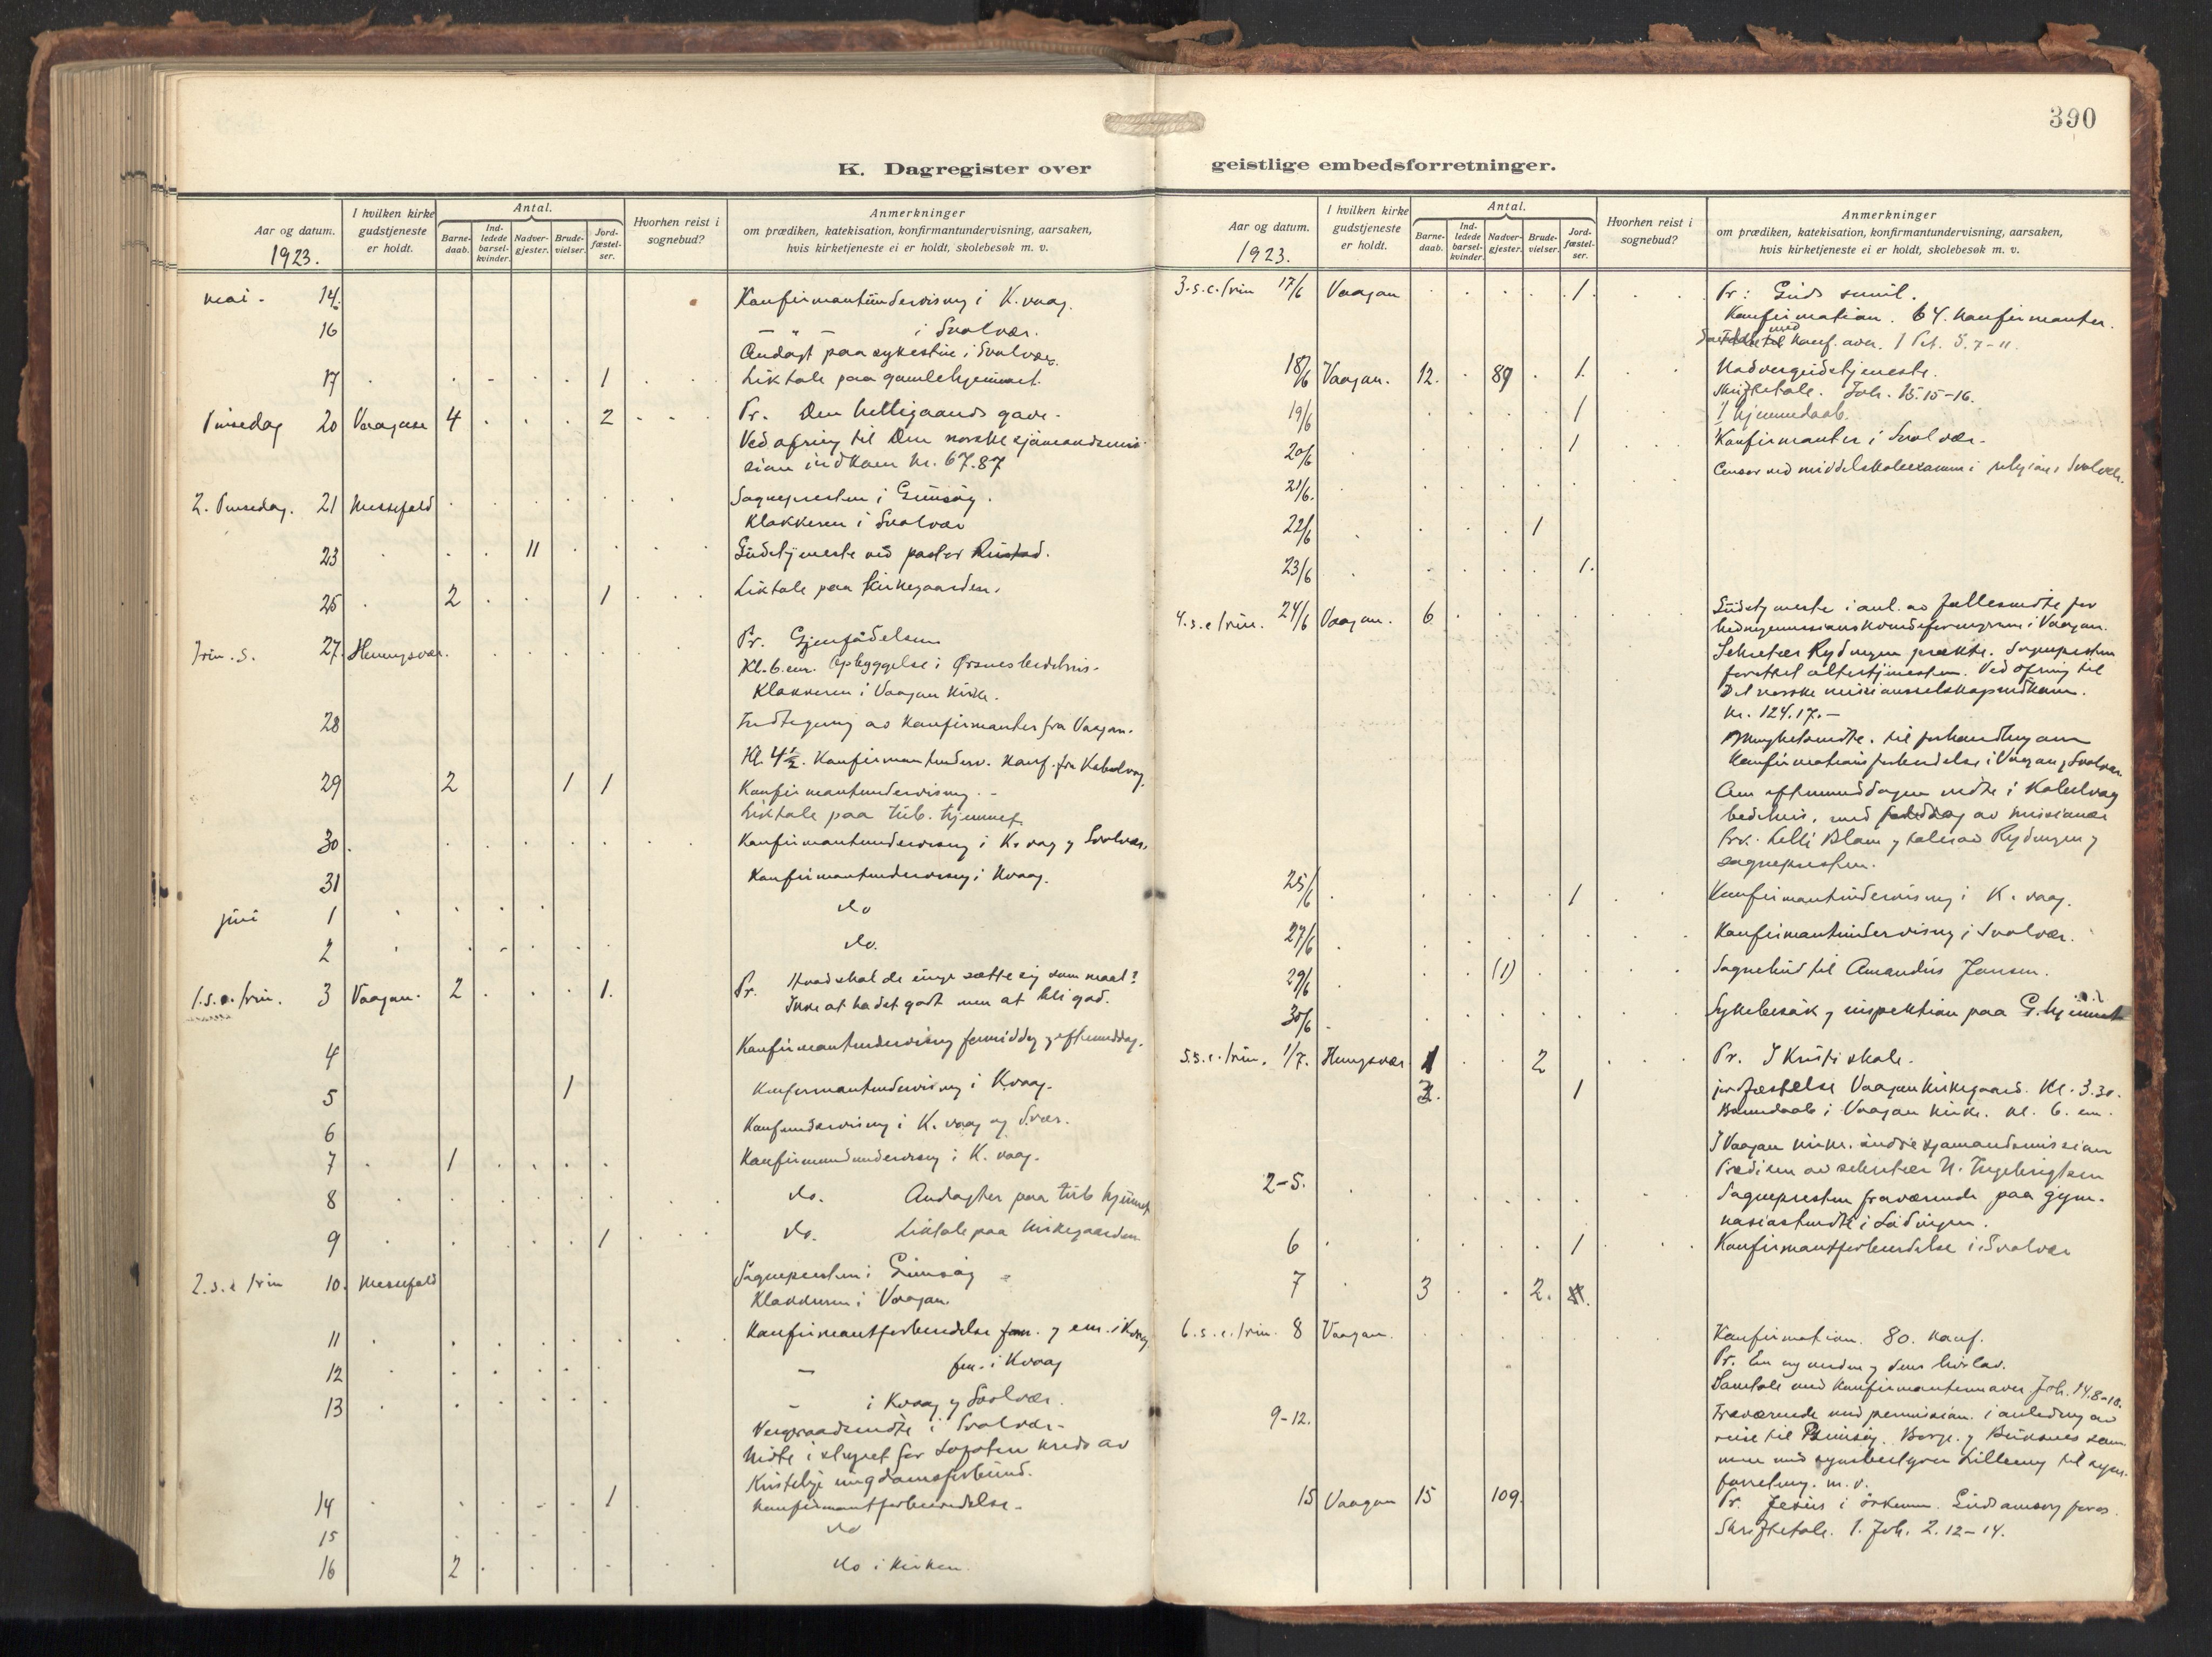 390
K. Dagregister over geistlige embedsforretninger.
Aar og datum. 1923.
I hvilken kirke gudstjeneste er holdt.
Antal.
Barnedaab.
Indledede barselkvinder.
Nadvergjester.
Brudevielser.
Jordfæstelser.
Hvorhen reist i sognebud?
Anmerkninger
om prædiken, katekisation, konfirmantundervisning, aarsaken,
hvis kirketjeneste ei er holdt, skolebesøk m. v.
mai - 14. Konfirmantundervisning i K.vaag.
16 — " — i Svolvær.
Andagt paa sykestue i Svolvær.
17 1 Liktale paa gamlehjemmet.
Pinsedag 20 Vaagan 4 2 Pr. Den helligaands gave.
Ved ofring til Den norske sjømandsmis-
sion indkom kr. 67.87
2. Pinsedag. 21 Messefald Sognepresten i Gimsøy.
Klokkeren i Svolvær
23 11 Gudstjeneste ved pastor Rustad.
25 2 1 Liktale paa kirkegaarden.
Trin. s. 27. Henningsvær. Pr. Gjenfødelsen
Kl. 6. em. Opbyggelse i Ørsnes bedehus.
Klokkeren i Vaagan kirke.
28 Indtegning av konfirmanter fra Vaagan.
Kl. 4½. Konfirmantunderv. konf. fra Kabelvaag.
29 2 1 1 Konfirmantundervisning. -
Liktale paa tub. hjemmet.
30 Konfirmantundervisning i K.vaag og Svolvær.
31 Konfirmantundervisning i Kvaag.
juni 1 do
2 do.
1.s.e.trin. 3 Vaagan. 2 1. Pr. Hvad skal de unge sætte sig som maal?
Ikke at ha det godt men at bli god.
4 Konfirmantundervisning formiddag og eftermiddag.
5 1 Konfirmantundervisning i Kvaag.
6 Konfundervisning i K.vaag og Svær.
7 1 Konfirmandundervisning i K. vaag.
8 do. Andagter paa tub hjemmet
9 1 do. Liktale paa kirkegaarden
2.s.e trin 10. Messefald Sognepresten i Gimsøy
Klokkeren i Vaagan.
11 Konfirmantforberedelse form. og em. i Kvaag
12 — fm. i Kvaag
13 - i Kvaag og Svolvær.
Vergeraadsmøte i Svolvær -
Møte i styret for Lofoten kreds av
Kristelige ungdomsforbund.
14 1 Konfirmantforberedelse -
15 do
16 2 do i kirken.
Aar og datum. 1923.
I hvilken kirke gudstjeneste er holdt.
Antal.
Barnedaab.
Indledede barselkvinder.
Nadvergjester.
Brudevielser.
Jordfæstelser.
Hvorhen reist i sognebud?
Anmerkninger
om prædiken, katekisation, konfirmantundervisning, aarsaken,
hvis kirketjeneste ei er holdt, skolebesøk m. v.
3.s.e.trin 17/6 Vaagan 1. Pr: Guds smil.
Konfirmation. 64. konfirmanter.
med konf. over. 1 Pet. 5. 7-11.
18/6 Vaagan. 12. 89 1. Nadvergudstjeneste.
Skriftetale. Joh. 15. 15-16.
19/6 1 1 hjemmedaab.
20/6 1 Konfirmanter i Svolvær.
Censor ved middelskoleexamen i religion i Svolvær.
21/6.
22/6 1
23/6 1.
4.s.e trin. 24/6 Vaagan. 6 Gudstjeneste i anl. av fællesmøte for
hedningemissionskvindeforeningerne i Vaagan.
Sekretær Rydningen prækte. Sognepresten
forrettet altertjenesten. Ved ofring til
Det norske missionsselskap indkom.
kr. 124.17.-
Menighetsmøte. til forhandling om
konfirmationsforberedelse i Vaagan og Svolvær
Om eftermiddagen møte i Kabelvaag
bedehus, med foredrag av missionær
frk. Lelli Blom og taler av Rydningen og
sognepresten.
25/6 1 Konfirmantundervisning i K. vaag.
27/6 Konfirmantundervisning i Svolvær.
29/6 (1) Sognebud til Amandus Jansen.
30/6 Sykebesøk og inspektion paa G. hjemmet
5.s.e.trin. 1/7. Henngsvær 1 2 Pr. I Kristi skole.
3. 1 jordfæstelse Vaagan kirkegaard. Kl. 3.30.
Barnedaab i Vaagan kirke. kl. 6. em.
I Vaagan kirke. indre sjømandsmission
Prædiken av sekretær N. Ingebrigtsen
2-5. Sognepresten fraværende paa gym-
nasiastmøte i Lødingen.
6 1 Konfirmantforberedelse i Svolvær
7 3 2.
6.s.e.trin. 8 Vaagan. Konfirmation. 80. konf.
Pr. En ny verden og dens livslov.
Samtale med konfirmantene over Joh. 14. 8-10.
9-12. Fraværende med permission. i anledning av
reise til Gimsøy. Borge. og Buksnes sam-
men med
forretning. m.v.
15 Vaagan 15 109. Pr. Jesus i ørkenen. Guds omsorg for os.
Skriftetale. 1. Joh. 2. 12-14.